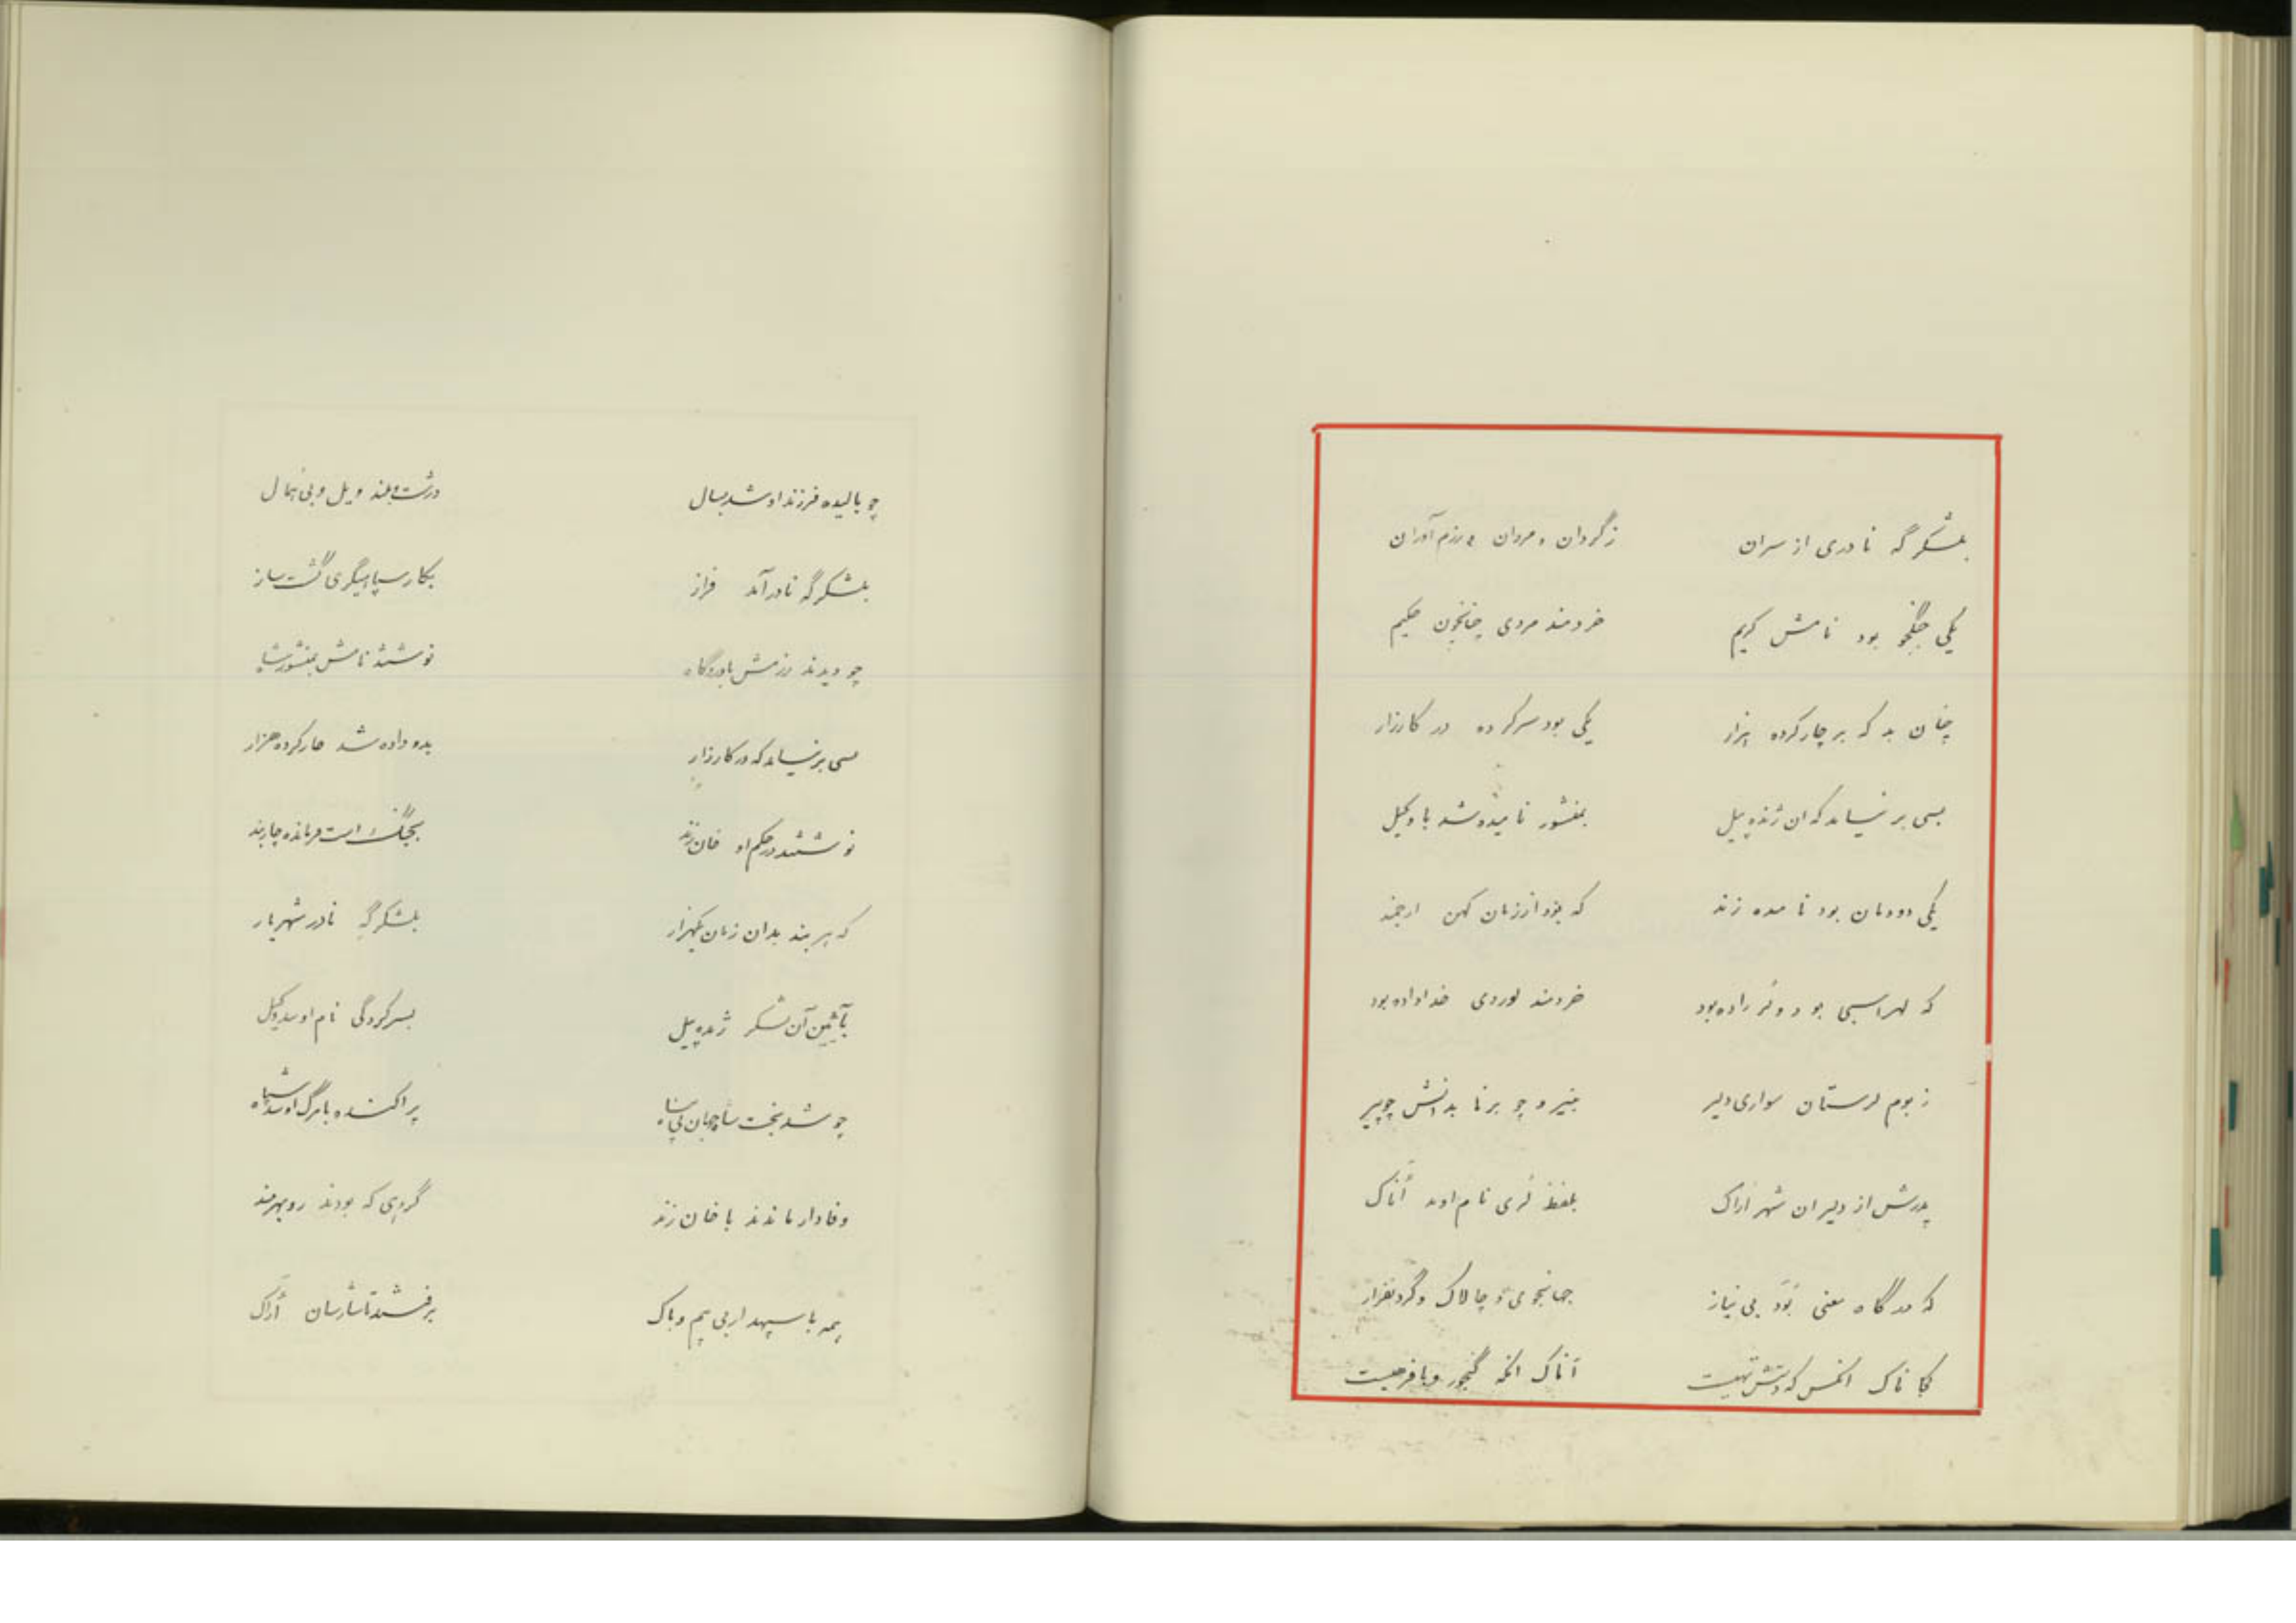 بلشکرگه نادری از سران زگردان و مردان و رزم آوران
یکی جنگجو بود نامش کریم خردمند مردی چنانچون حکیم
چنان بد که بر چارکرده هزار یکی بود سرکرده در کارزار
بسی بر نیامد که ان ژنده پیل بمنشور نامیده شد با وکیل
یکی دودمان بود نامده زند که بود از زمان کهن ارجمند
که لهراسبی بود و لر زاده بود خردمند لوردی خداداده بود
ز بوم لرستان سواری دلیر بنیرو چو برنا بدانش چو پیر
پدرش از دلیران شهر اراک بلفظ لری نام او بد اُناک
که مدگاه معنی بُوَد بی نیاز جهانجوی و چالاک و گردنفراز
کجا ناک انکس که دستش تهیست اُناک انکه گنجور وبا فرهیست
چو بالیده فرزند او شد بسال درشت و بلند و یل و بی همال
بلشکرگه نادر آمد فراز بکار سپاهیگری گشت ساز
چو دیدند رزمش باوردگاه نوشتند نامش بمنشور شاه
بسی بر نیامد که در کارزار بدو داده شد چارکرده هزار
نوشتند در حکم او خان زند بجنگ است فرمانده چاربند
که هر بند بدان زمان یکهزار بلشکرگه نادر شهریار
بآئین آن لشکر ژنده پیل بسرکردگی نام او شد وکیل
چو شد بخت شاه جهان بی پناه پراکنده با مرگ او شد سپاه
وفادار ماندند با خان زند گروهی که بودند رو بهرمند
همه با سپهدار بی بیم و باک برفتند تا شارسان اُراک